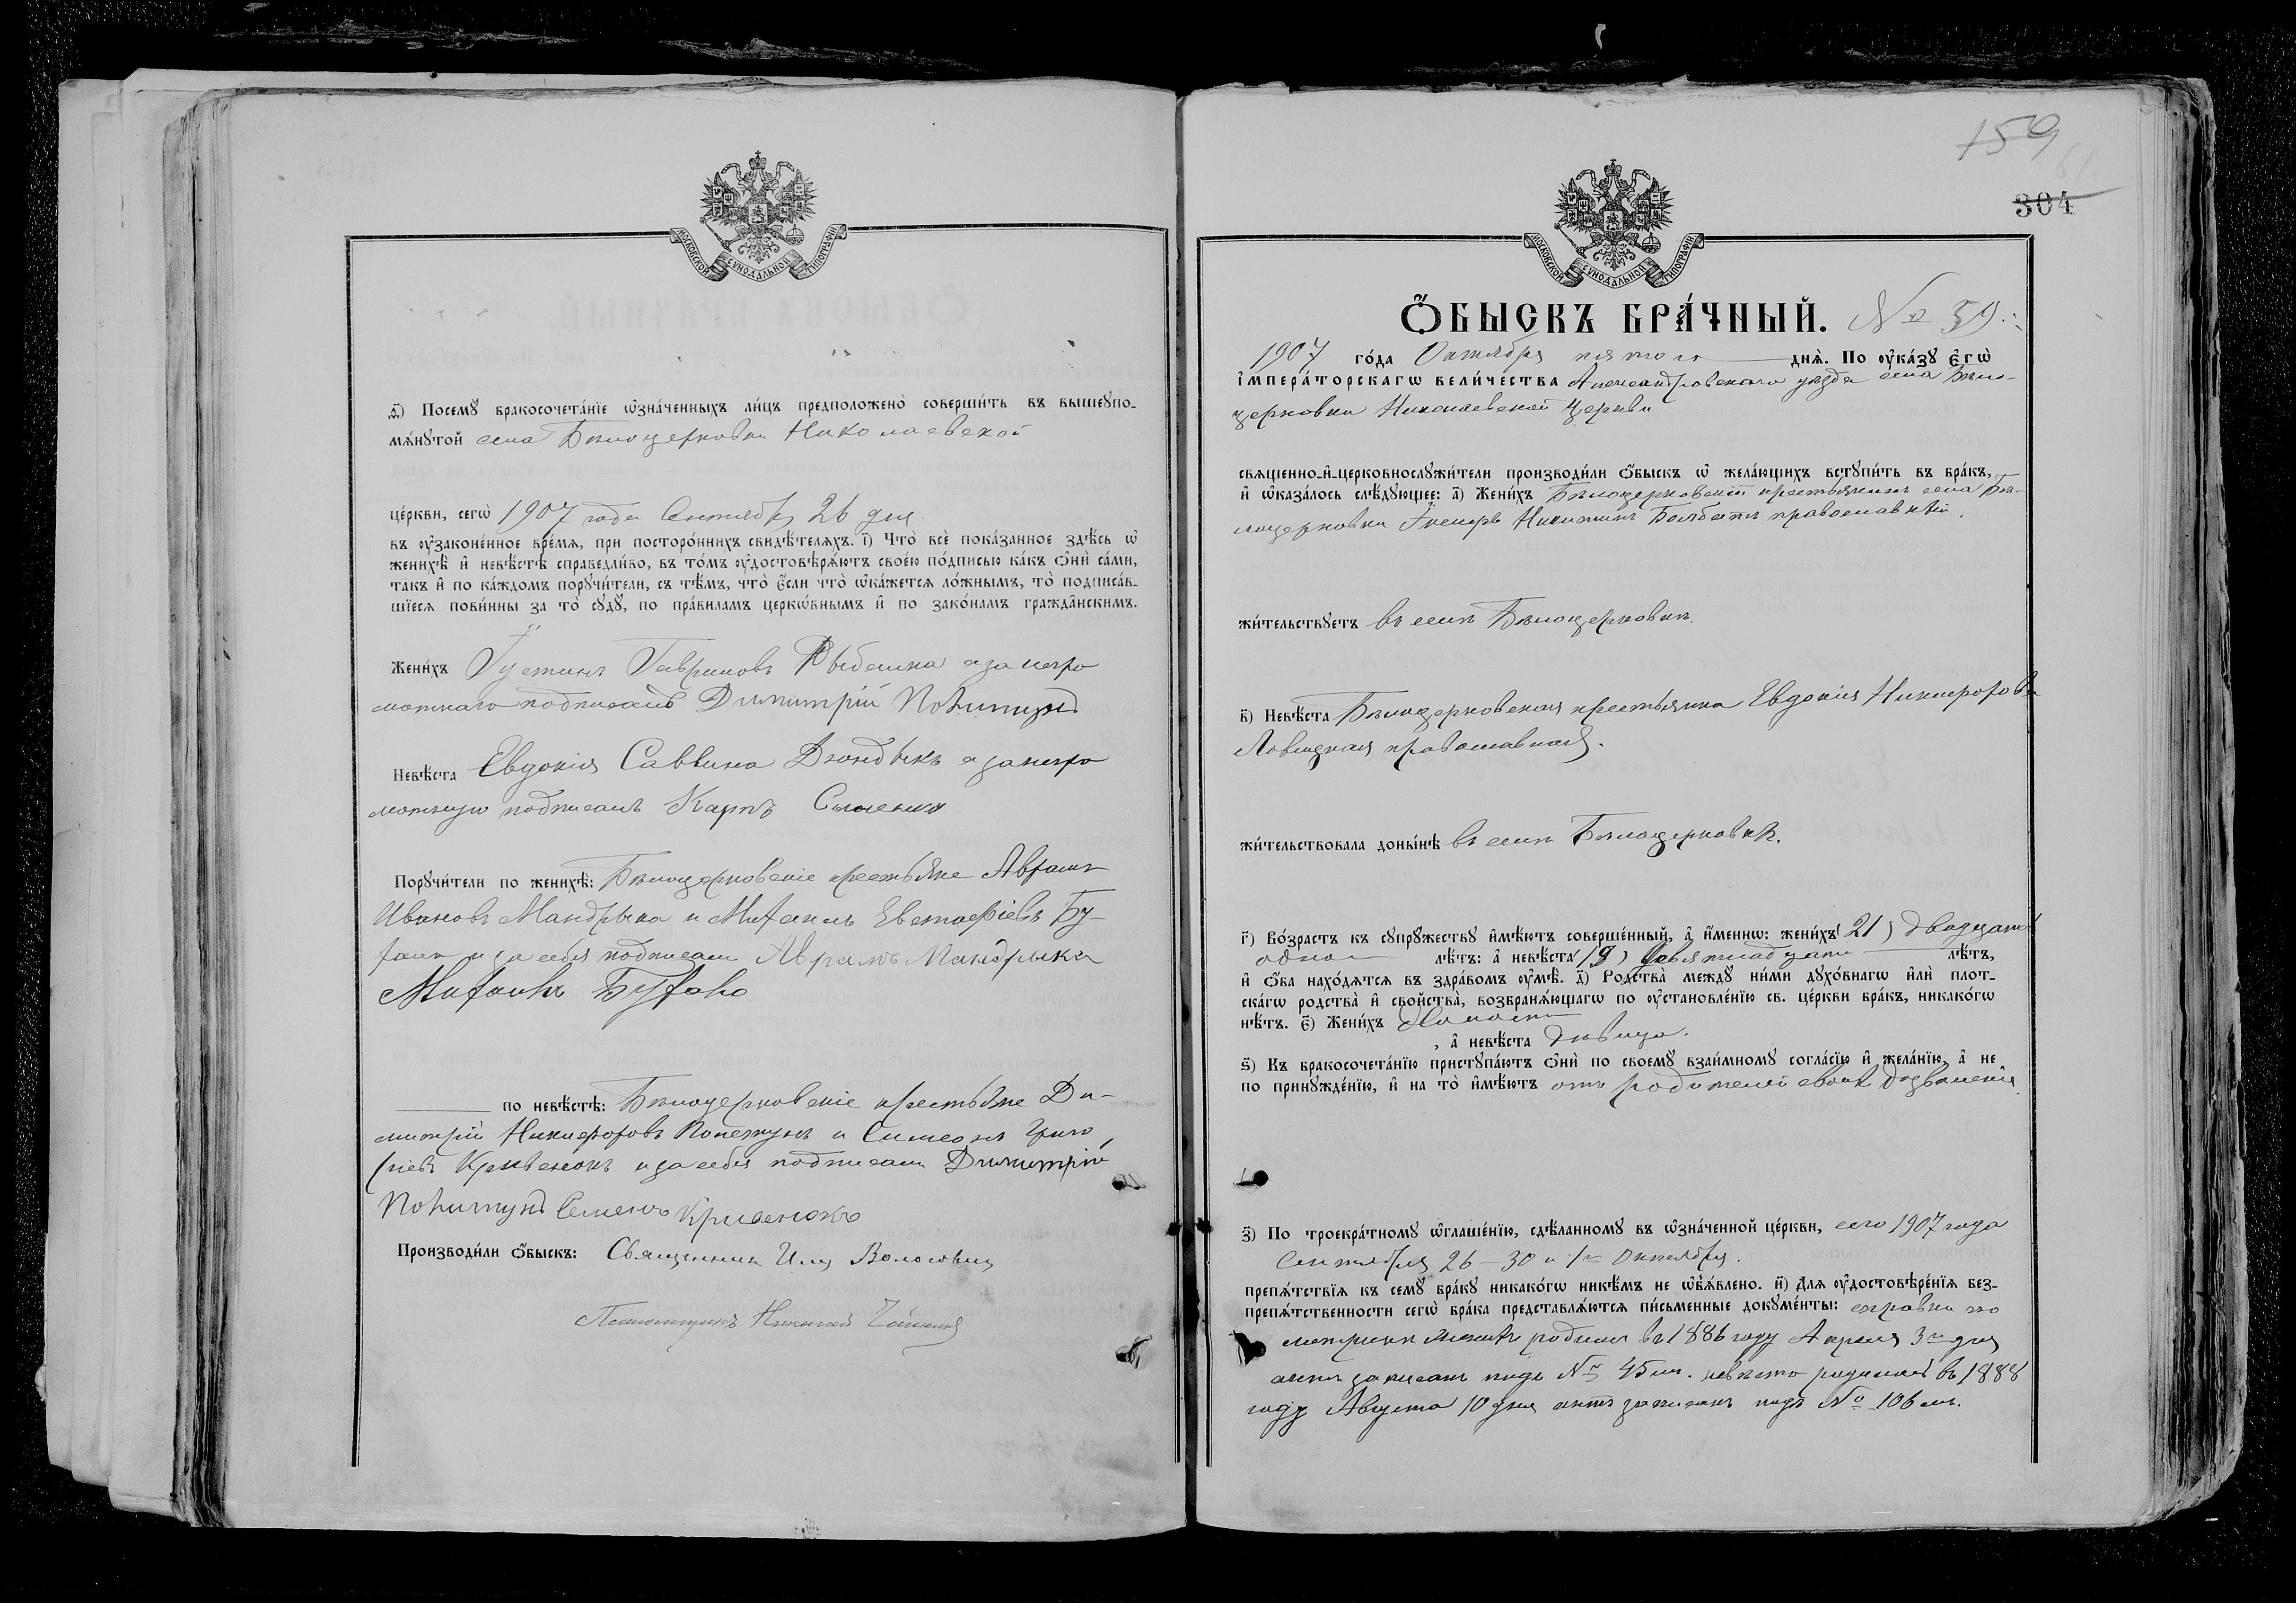 МОСКОВСКОЙ СѴНОДАЛЬНОЙ ТИПОГРАФІИ
ѳ҃) Посемꙋ̀ бракосочета́нїе ѡ҆зна́ченныхъ ли́цъ предположено̀ соверши́ть въ вышеꙋпо-
мѧ́нꙋтой села Бѣлоцерковки Николаевской
це́ркви, сегѡ̀ 1907 года Сентября 26 дня
въ ᲂу҆законе́нное вре́мѧ, при посторо́ннихъ свидѣ́телѧхъ. і҃) Что̀ всѐ пока́занное здѣ́сь ѡ҆
женихѣ̀ и҆ невѣ́стѣ справедли́во, въ то́мъ ᲂу҆достовѣрѧ́ютъ свое́ю по́дписью ка́къ ѻ҆нѝ са́ми,
та́къ и҆ по ка́ждомъ порꙋчи́тели, съ тѣ́мъ, что̀ є҆́сли что̀ ѡ҆ка́жетсѧ ло́жнымъ, то̀ подписа́в-
шїесѧ пови́нны за то̀ сꙋдꙋ̀, по пра́виламъ церкѡ́внымъ и҆ по зако́намъ гражда̑нскимъ.
Жени́хъ Іустинъ Гавриловъ Рыбалка а за негра
мотнаго подписалъ Димитрій
Невѣ́ста Евдокія Саввина а за негра
мотную подписалъ Карпъ
Порꙋчи́тели по женихѣ̀: Бѣлоцерковскіе крестьяне Аврамъ
Ивановъ Мандрыка и Михаилъ Евстафіевъ Бу-
и за себя подписали Аврамъ Мандрыка
Михаилъ
по невѣ́стѣ: Бѣлоцерковскіе крестьяне Ди-
митрій Никифоровъ и Симеонъ Григо
ріевъ и за себя подписали Димитрій
Семенъ
Производи́ли ѻ҆́быскъ: Священникъ Илія Волосовичъ
Псаломщикъ Николай
159
304
МОСКОВСКОЙ СѴНОДАЛЬНОЙ ТИПОГРАФІИ
Ѻ҆́БЫСКЪ БРА́ЧНЫЙ. № 59.
1907 го́да Октября пятого днѧ̀. По ᲂу҆ка́зꙋ є҆гѡ̀
і҆мпера́торскагѡ вели́чества Александровскаго уѣзда села Бѣло-
церковки Николаевской церкви
свѧще́нно-и҆-церковнослꙋжи́тели производи́ли ѻ҆́быскъ ѡ҆ жела́ющихъ встꙋпи́ть въ бра́къ,
и҆ ѡ҆каза́лось слѣ́дꙋющее: а҃) Жени́хъ Бѣлоцерковскій крестьянинъ села Бѣ-
лоцерковки Никитинъ православный.
жи́тельствꙋетъ въ селѣ Бѣлоцерковкѣ.
в҃) Невѣ́ста Бѣлоцерковская крестьянка Евдокія Никифорова
православная.
жи́тельствовала доны́нѣ въ селѣ Бѣлоцерковкѣ.
г҃) Во́зрастъ къ сꙋпрꙋ́жествꙋ и҆мѣ́ютъ соверше́нный, а҆ и҆́меннѡ: жени́хъ 21) двадцать
одно лѣ́тъ: а҆ невѣ́ста 19) девятнадцати лѣ́тъ,
и҆ ѻ҆́ба нахо́дѧтсѧ въ здра́вомъ ᲂу҆мѣ̀. д҃) Родства̀ междꙋ̀ ни́ми дꙋхо́внагѡ и҆лѝ плот-
ска́гѡ родства̀ и҆ сво́йства, возбранѧ́ющагѡ по ᲂу҆становле́нїю св. це́ркви бра́къ, никако́гѡ
нѣ́тъ. є҃) Жени́хъ холостъ
, а҆ невѣ́ста дѣвица.
ѕ҃) Къ бракосочета́нїю пристꙋпа́ютъ ѻ҆нѝ по своемꙋ̀ взаи́мномꙋ согла́сїю и҆ жела́нїю, а҆ не
по принꙋжде́нїю, и҆ на то̀ и҆мѣ́ютъ отъ родителей своихъ дозволеніе
з҃) По троекра́тномꙋ ѡ҆глаше́нїю, сдѣ́ланномꙋ въ ѡ҆зна́ченной це́ркви, сего 1907 года
Сентября 26 – 30 и 1го Октября.
препѧ́тствїѧ къ семꙋ̀ бра́кꙋ никако́гѡ никѣ́мъ не ѡ҆б̾ѧ́влено. и҃) Длѧ ᲂу҆достовѣре́нїѧ без-
препѧ́тственности сегѡ̀ бра́ка представлѧ́ютсѧ пи́сьменные докꙋме́нты: справки по
метрикѣ женихъ родился въ 1886 году Апрѣля 3го дня
актъ записанъ подъ № 45м. невѣста родилась въ 1888
году Августа 10 дня актъ записанъ подъ № 106м.